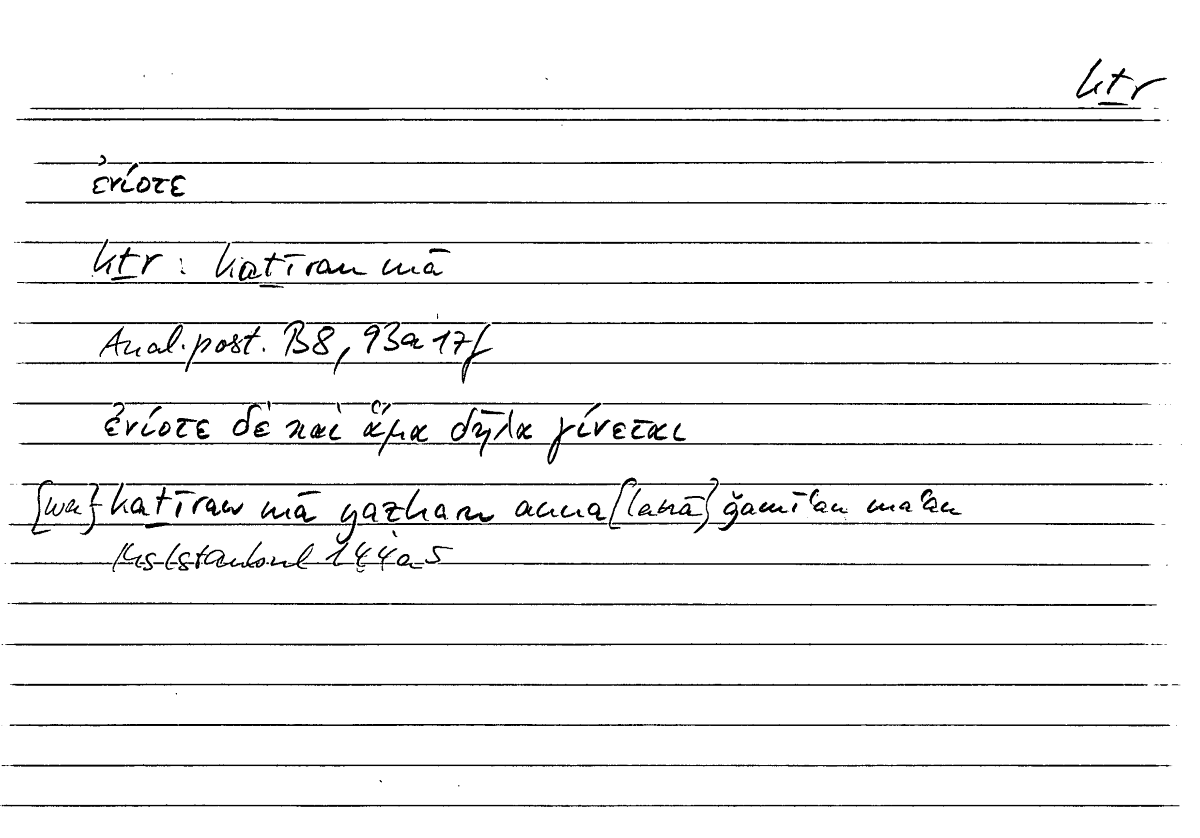 kṯr
ἐνίοτε
kṯr : kaṯīran mā
Anal. post. B8, 93a 17f
ἐνίοτε δὲ καὶ ἅμα δῆλα γίνεται
[wa] kaṯīran mā yaẓharu anna [lanā] ǧamīʿan maʿan
Ms Istanbul 144a 5